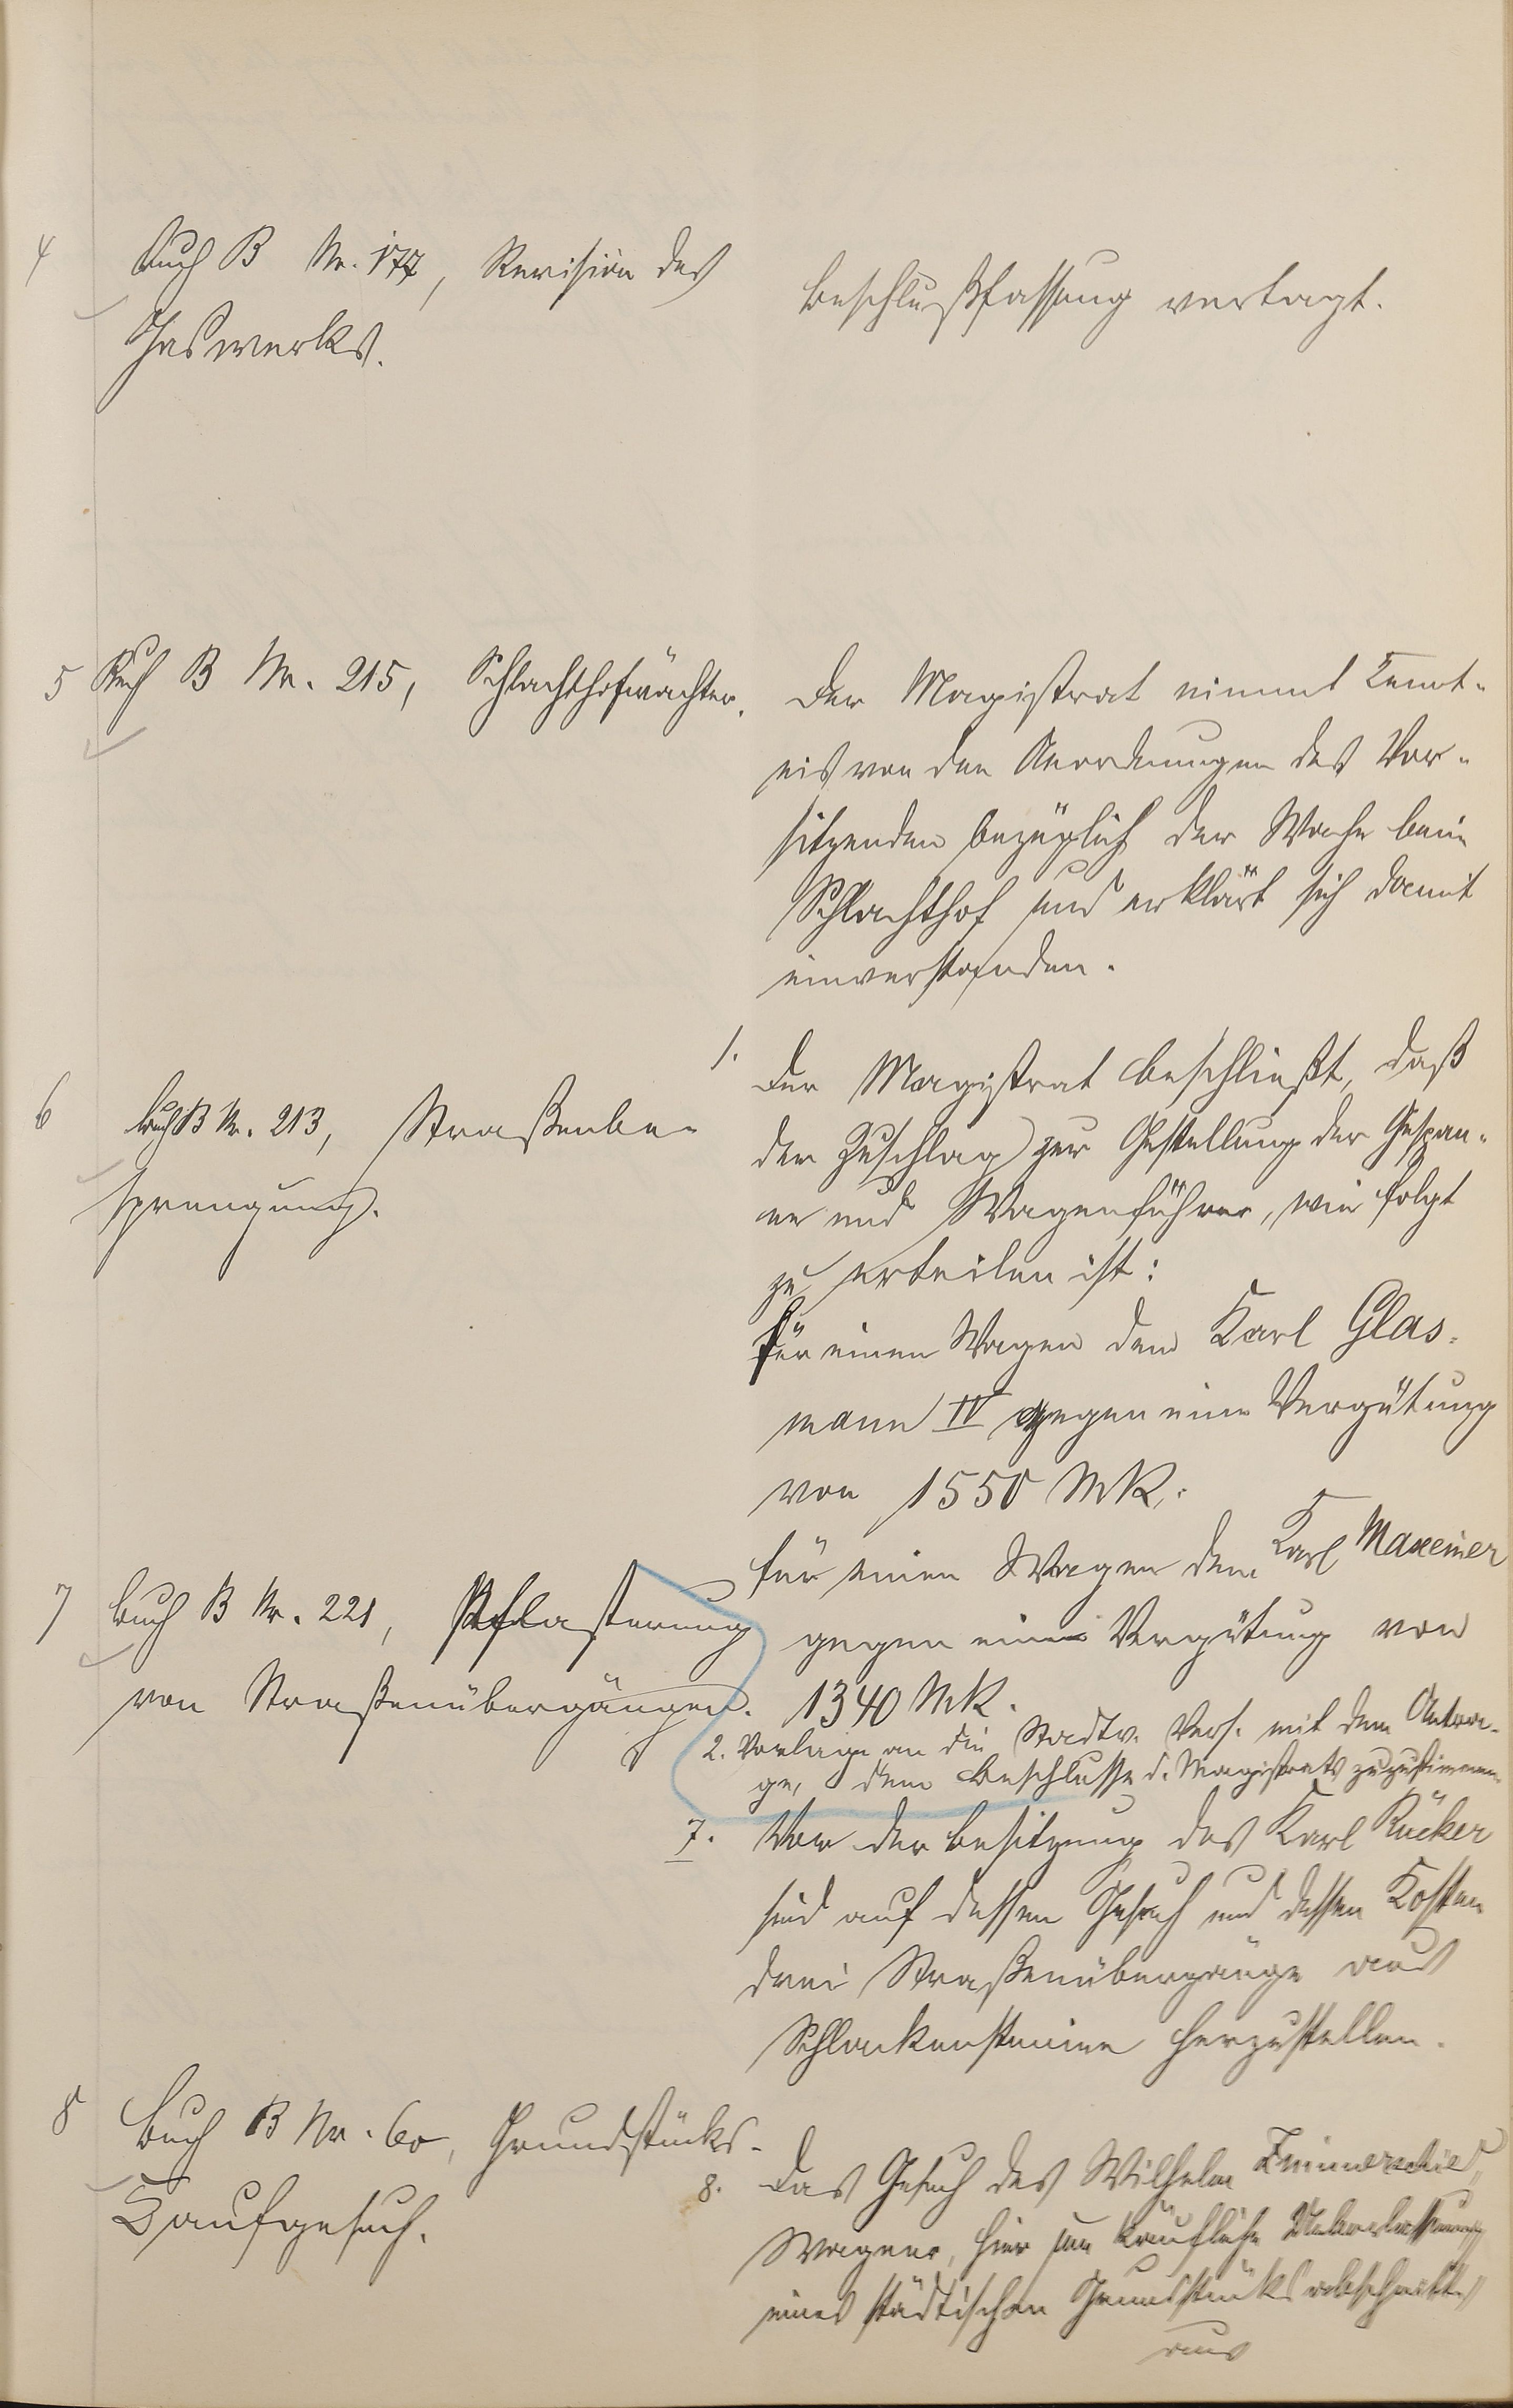 4
Buch B Nr. 177, Revision des
Gaswerks.
Beschlußfassung vertagt.
5 Buch B Nr. 215, Schlachthofwächter.
Der Magistrat nimmt Kennt-
nis von den Anordnungen des Vor-
sitzenden bezüglich der Wache beim
Schlachthof und erklärt sich damit
einverstanden.
6 Buch B Nr. 213, Straßenbe-
sprengung.
1. Der Magistrat beschließt, daß
der Zuschlag zur Gestellung der Gespan-
ne und Wagenführer, wie folgt
zu erteilen ist:
Für einen Wagen dem Karl Glas-
mann IV gegen eine Vergütung
von 1550 Mk.
für einen Wagen dem Karl Maxeiner
gegen eine Vergütung von
1340 Mk.
2. Vorlage an die Stadtv. Vers. mit dem Antra-
ge, dem Beschlusse d. Magistrats zuzustimmen.
7 Buch B Nr. 221, Pflasterung
von Straßenübergängen.
7. Vor der Besitzung des Karl Rücker
sind auf dessen Gesuch und dessen Kosten
drei Straßenübergänge aus
Schlackensteinen herzustellen.
8 Buch B Nr. 60, Grundstücks-
Kaufgesuch.
8. Das Gesuch des Wilhelm Zimmerschied,
Wagner, hier um käufliche Ueberlassung
eines städtischen Grundstücksabschnitts
aus